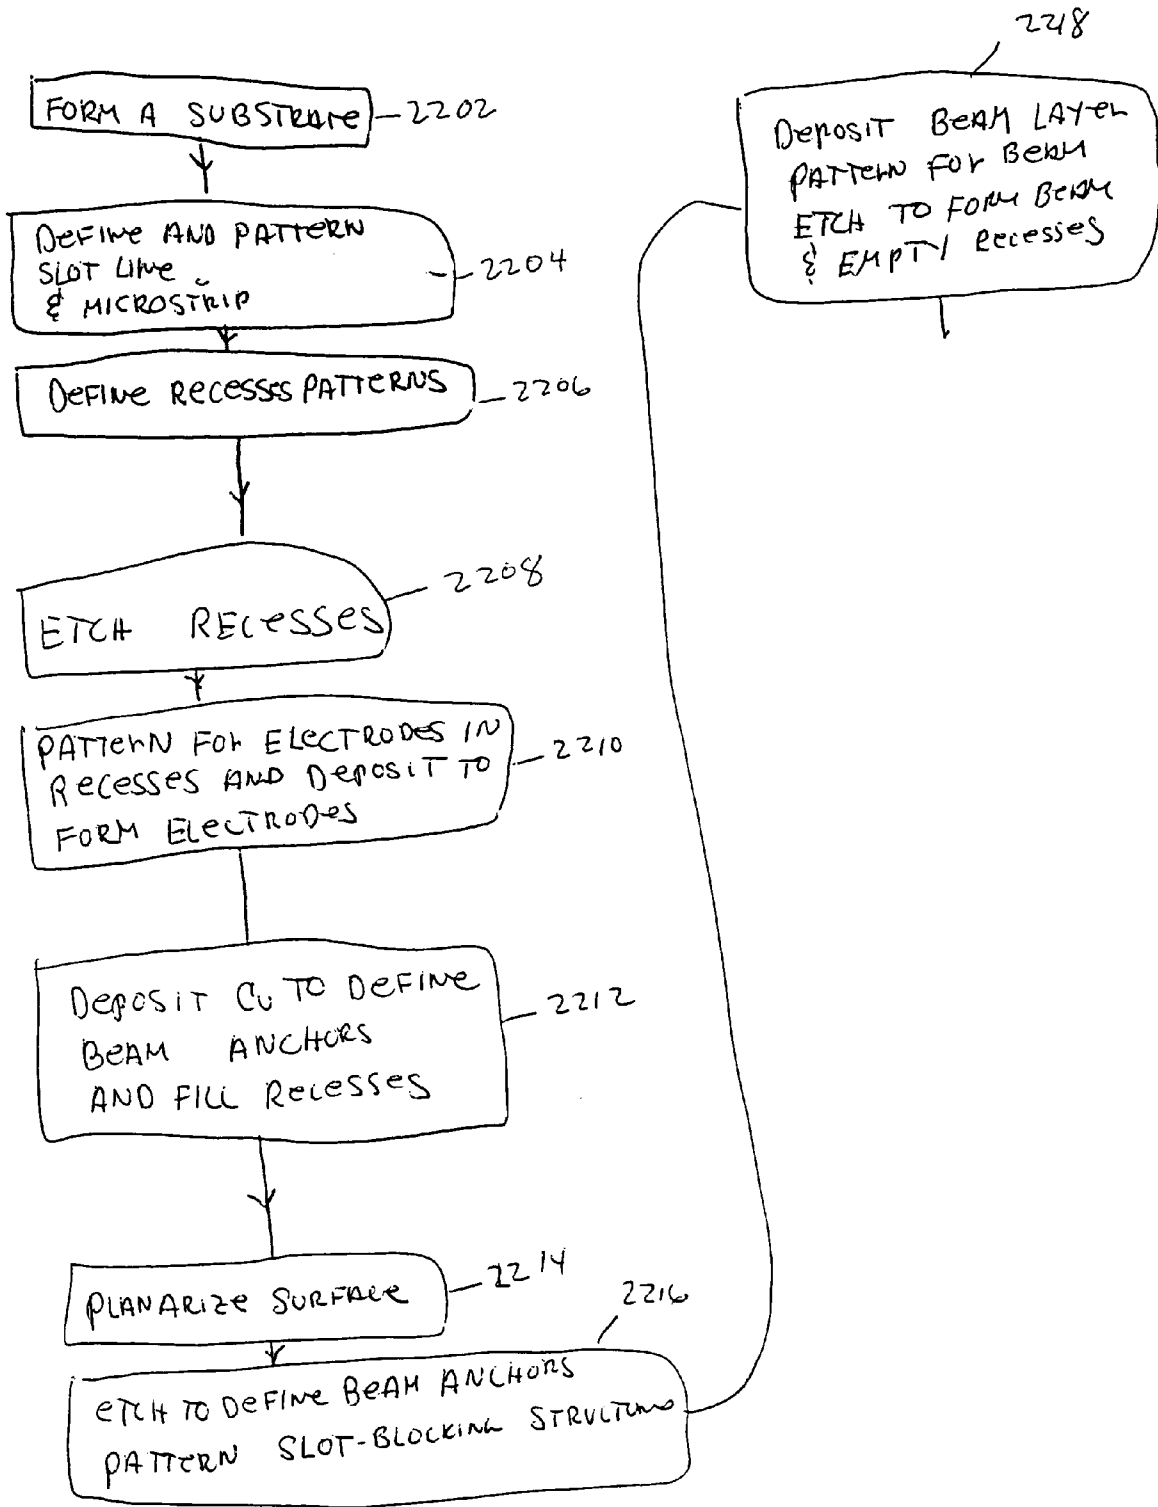 FORM A SUBSTRATE
2202
DEFINE AND PATTERN
SLOT LINE
& MICROSTRIP
2204
DEFINE RECESSES PATTERNS
2206
ETCH RECESSES
2208
PATTERN FOR ELECTRODES IN
RECESSES AND DEPOSIT TO
FORM ELECTRODES
2210
DEPOSIT CU TO DEFINE
BEAM ANCHORS
AND FILL RECESSES
2212
PLANARIZE SURFACE
2214
2216
ETCH TO DEFINE BEAM ANCHORS
PATTERN SLOT-BLOCKING STRUCTURES
2218
DEPOSIT BEAM LAYER
PATTERN FOR BEAM
ETCH TO FORM BEAM
& EMPTY RECESSES